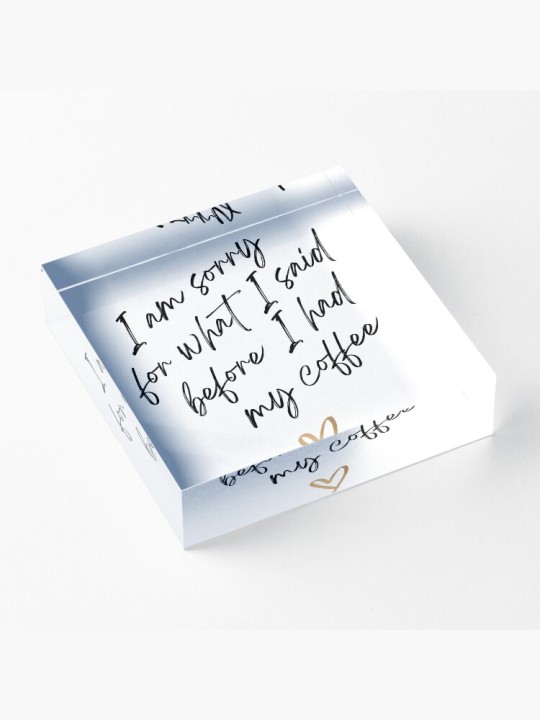 I am sorry
for what I said
before I had
my coffee
my coffee